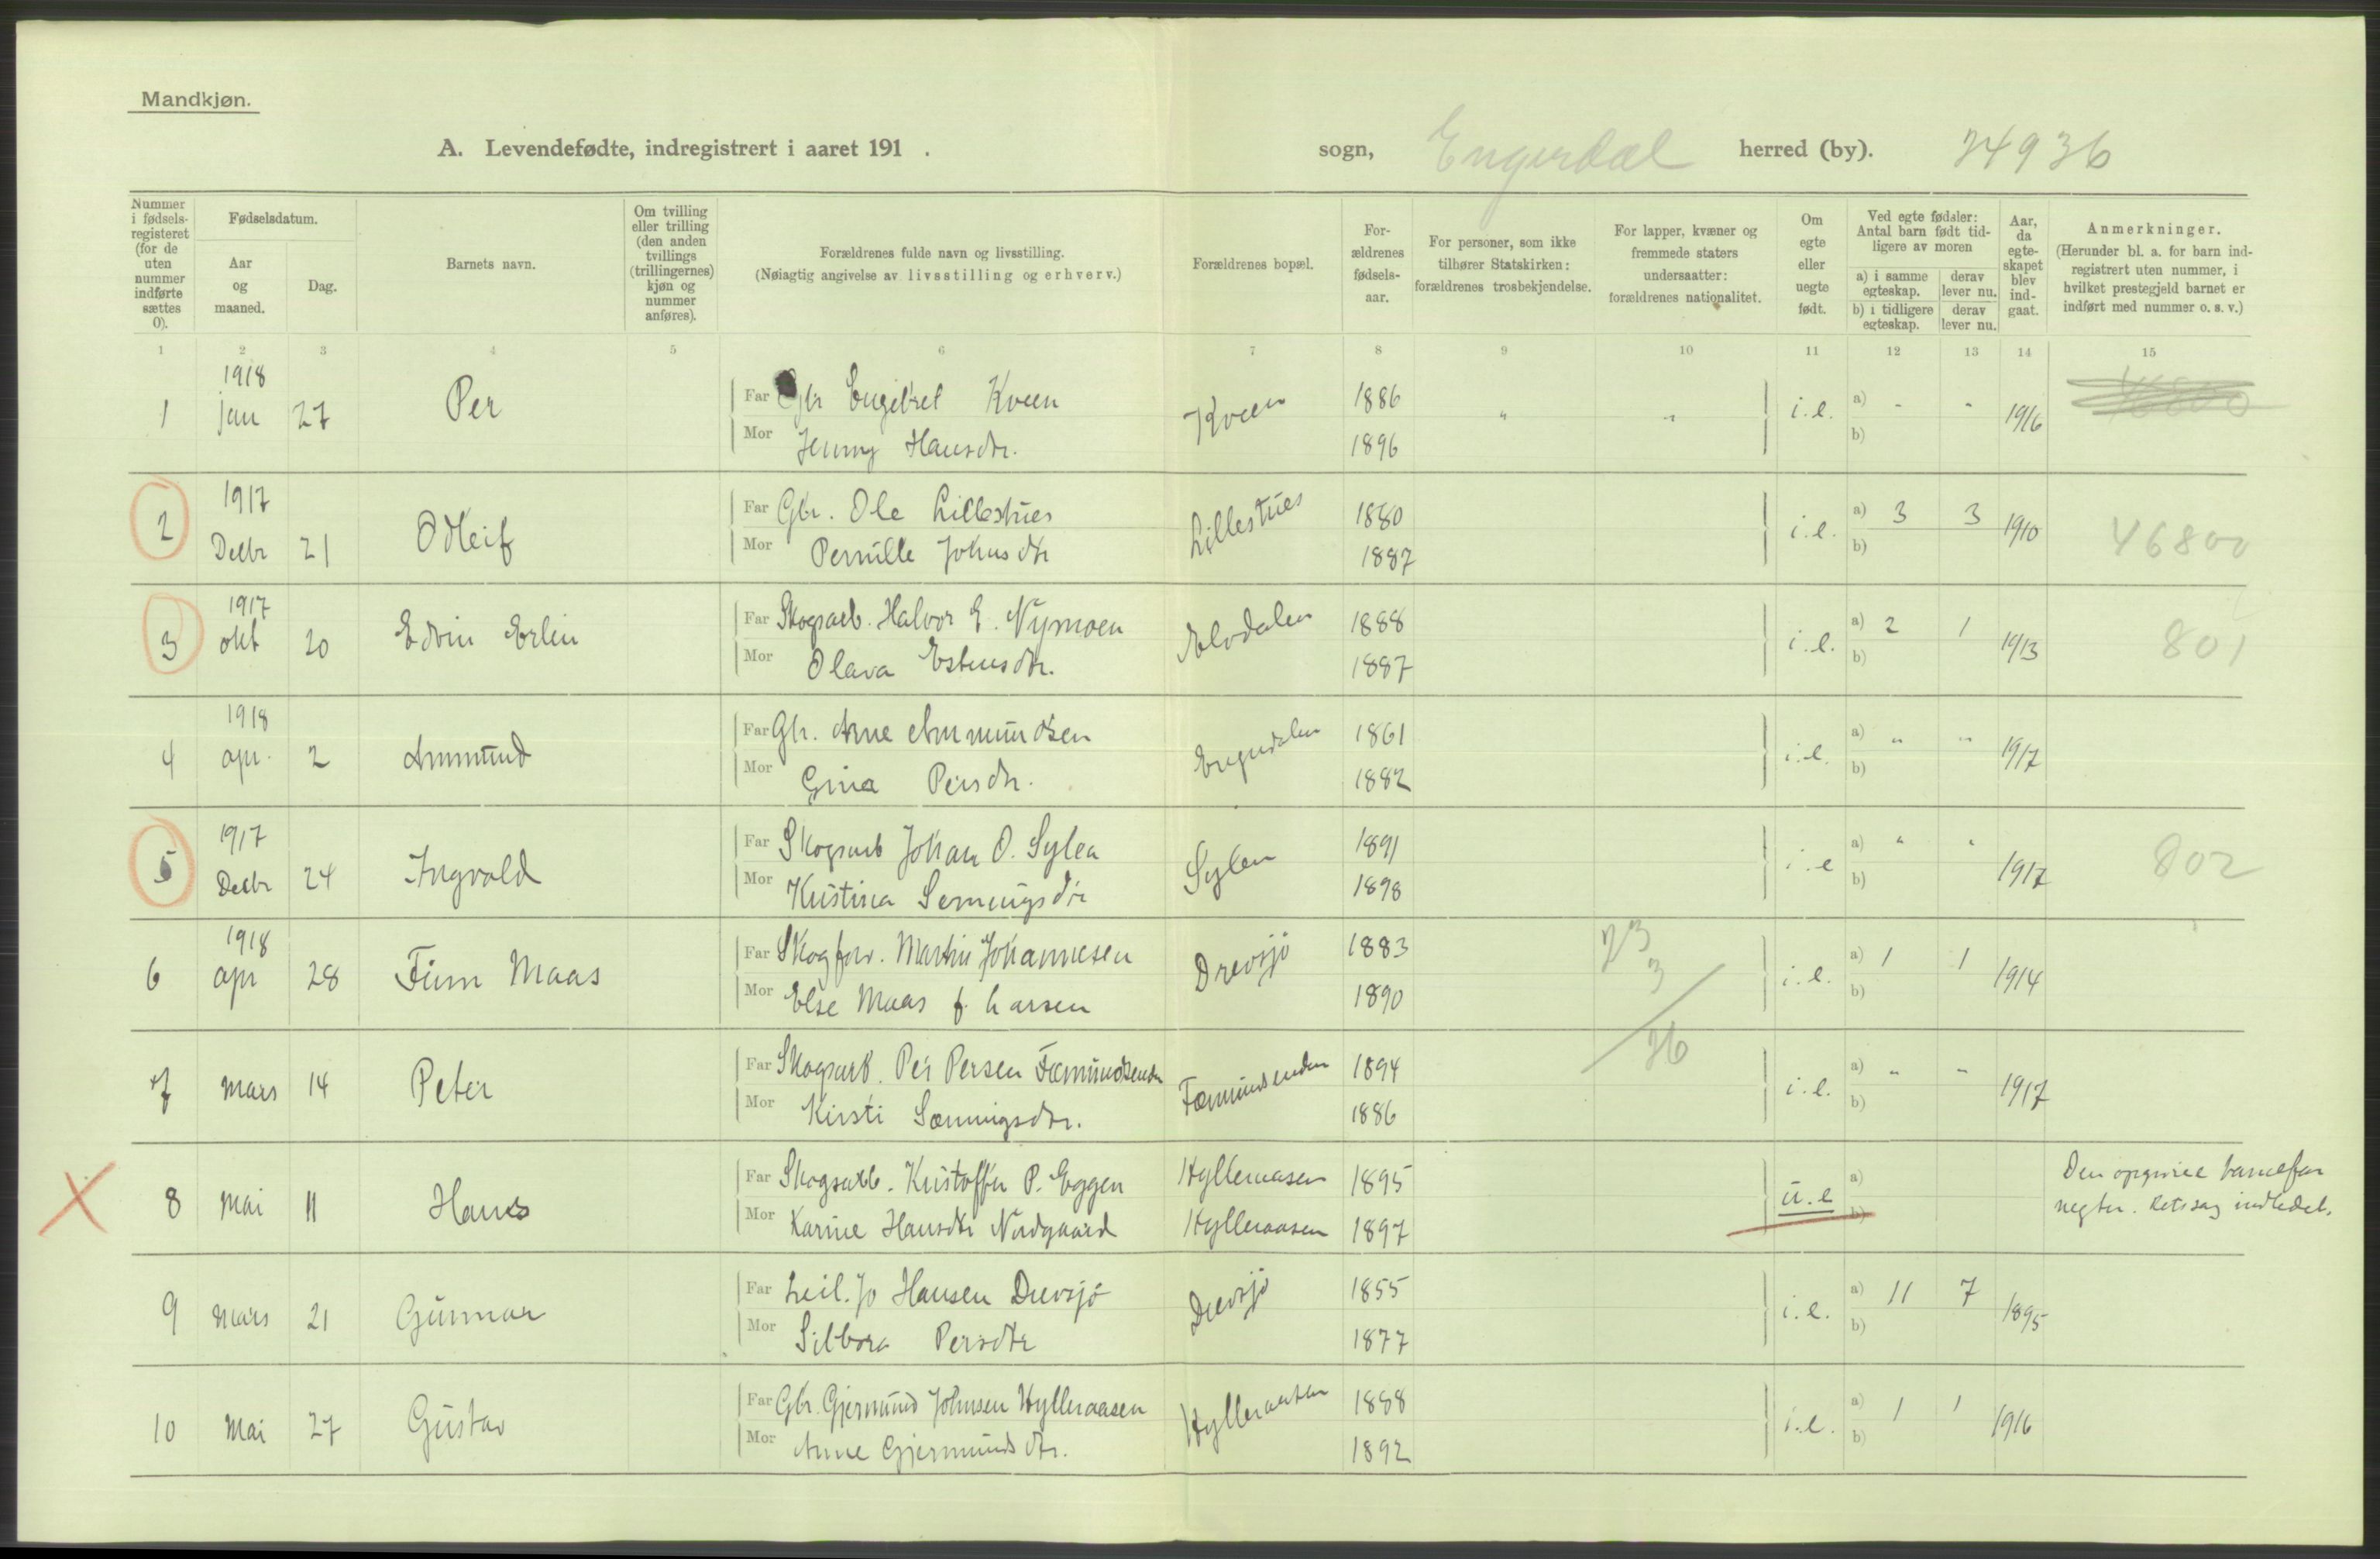 Mandkjøn.
A. Levendefødte, indregistrert i aaret 191 .
sogn, Engerdal herred (by). 24936
Nummer i fødsels-registeret (for de uten nummer indførte sættes 0).
Fødselsdatum.
Aar og maaned.
Dag.
Barnets navn.
Om tvilling eller trilling (den anden tvillings (trillingernes) kjøn og nummer anføres).
Forældrenes fulde navn og livsstilling.
(Nøiagtig angivelse av livsstilling og erhverv.)
Forældrenes bopæl.
For-ældrenes fødsels-aar.
For personer, som ikke tilhører Statskirken: forældrenes trosbekjendelse.
For lapper, kvæner og fremmede staters undersaatter: forældrenes nationalitet.
Om egte eller uegte født.
Ved egte fødsler: Antal barn født tid-ligere av moren
a) i samme egteskap.
derav lever nu.
b) i tidligere egteskap.
derav lever nu.
Aar, da egte-skapet blev ind-gaat.
Anmerkninger.
(Herunder bl. a. for barn ind-registrert uten nummer, i hvilket prestegjeld barnet er indført med nummer o. s. v.)
1 2 3 4 5 6 7 8 9 10 11 12 13 14 15
1918
1 jan 27 Per Far Gbr Engebret Kveen Kveen 1886 " " i.e. a) - - 1916
Mor Jenny Hansdtr. 1896 b)
1917
2 Delbr 21 Odleif Far Gbr. Ole Lillestues Lillestues 1880 i.e. a) 3 3 1910 46800
Mor Pernille Johnsdtr 1887 b)
1917
3 okt 20 Edvin Erlin Far Skogsarb. Halvor E. Nymoen Elvdalen 1888 i.e. a) 2 1 1913 801
Mor Olava Estensdtr. 1887 b)
1918
4 apr. 2 Ammund Far Gbr. Arne Ammundsen Engerdalen 1861 i.e. a) " " 1917
Mor Gina Persdtr. 1882 b)
1917
5 Delbr 24 Ingvald Far Skogsarb Johan O. Sylen Sylen 1891 i.e a) " " 1917 802
Mor Kristina Semingsdtr 1898 b)
1918
6 apr 28 Finn Maas Far Skogforv. Martin Johannesen Drevsjø 1883 23 3 i.e. a) 1 1 1914
Mor Else Maas f. Larsen 1890 b)
26
7 Mars 14 Peter Far Skogsarb. Per Persen Fæmundsenden Fæmundsenden 1894 i.e. a) " " 1917
Mor Kirsti Sæmingsdtr. 1886 b)
8 Mai 11 Hans Far Skogsarb. Kristoffer P. Eggen Hylleraasen 1895 u.e a) Den opgivne barnefar
Mor Karine Hansdtr Nordgaard Hylleraasen 1897 b) negter. Retssag indledet.
9 Mars 21 Gunnar Far Leil. Jo Hansen Drevsjø Drevsjø 1855 i.e. a) 11 7 1895
Mor Silbora Persdtr 1877 b)
10 Mai 27 Gustav Far Gbr. Gjermund Johnsen Hylleraasen Hylleraasen 1888 i.e. a) 1 1 1916
Mor Anne Gjermundsdtr. 1892 b)